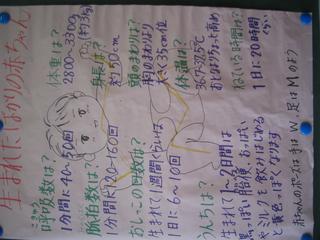 生まれたばかりの赤ちゃん
体重は?
2800〜3300g
(約3kg)
身長は?
約50cm
頭のまわりは?
胸のまわりより
大きく35cm位
体温は?
36.7〜37.5℃
おとなよりちょっと高め
ねている時間は?
1日に20時間
くらい
こきゅう
呼吸数は?
1分間に40〜50回
脈拍数は?
1分間に120〜160回
おしっこの回数は?
生まれて1週間ぐらいは
1日に6〜10回
うんちは?
生まれて1〜2日間は
黒っぽい胎便、おっぱい
やミルクを飲みはじめる
と黄色っぽくなります
赤ちゃんのポーズは手はW、足はMのよう